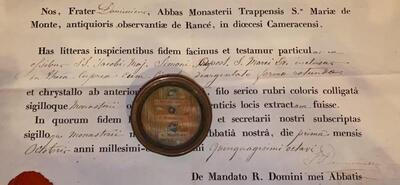 Nos, Frater Dominicus, Abbas Monasterii Trappensis S.ᵃᵉ Mariæ de
Monte, antiquioris observantiæ de Rancé, in diœcesi Cameracensi.
Has litteras inspicientibus fidem facimus et testamur particul
ossibus SS. Jacobi Maj. Simonis Apost. S. Marci
in theca cuprea forma rotunda
et chrystallo ab anteriori filo serico rubri coloris colligatâ
sigilloque Monasterii locis extractam fuisse.
In quorum fidem et secretarii nostri subscriptas
sigilloque monasterii Abbatiâ nostrâ, die primâ mensis
Octobris anni millesimi quinquagesimi octavi
De Mandato R. Domini mei Abbatis